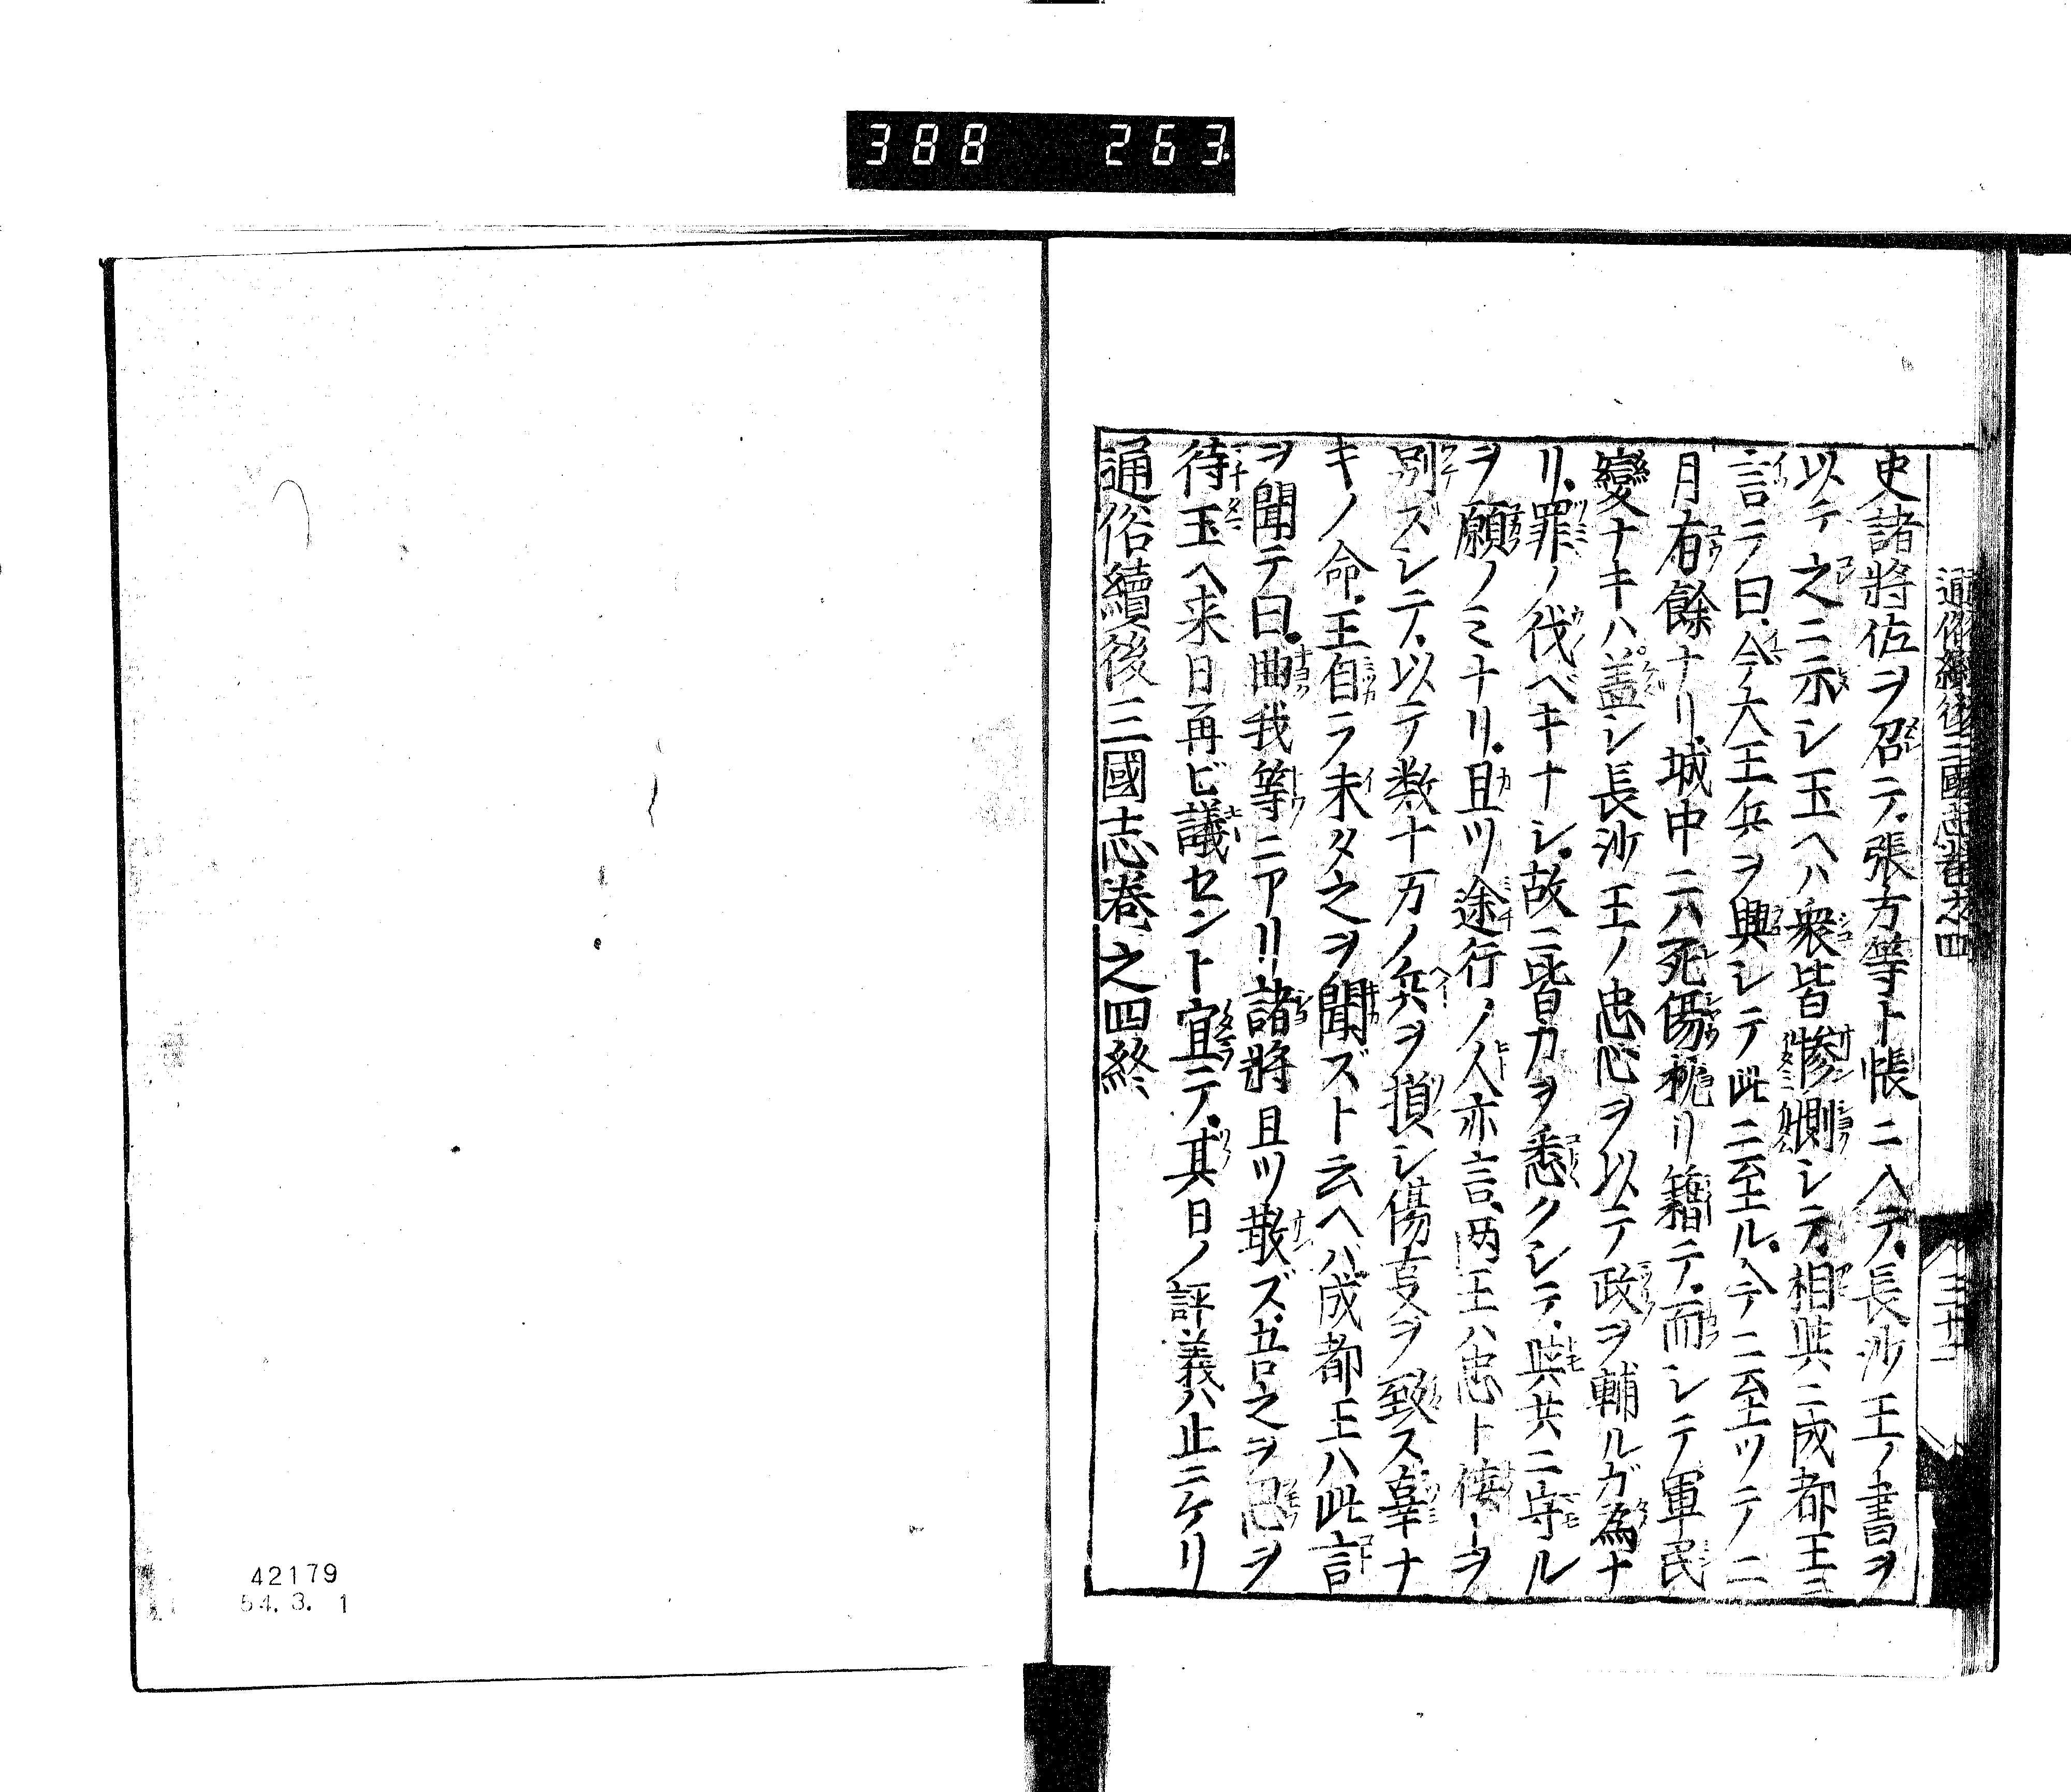 388 263
通俗續後三國志卷之四
三十二
史諸將佐ヲ召テ、張方等ト帳ニ入テ、長沙王ノ書ヲ
以テ之ニ示シ玉ヘハ衆皆惨惻シテ、相與ニ成都王ニ
言テ曰、今大王兵ヲ興シテ此ニ至ル、ヘテニ至ツテノ二
月有餘ナリ、城中ニハ死傷枕リ籍テ、而シテ軍民
變ナキハ、盖シ長沙王ノ忠心ヲ以テ政ヲ輔ルガ為ナ
リ、罪ノ伐ベキナシ、故ニ皆力ヲ悉クシテ、與共ニ守ル
ヲ願ノミナリ、且ツ途行ノ人亦言、两王ハ忠ト侫トヲ
別ズシテ、以テ数十万ノ兵ヲ損シ傷亡ヲ致ス辜ナ
キノ命、王自ラ未タ之ヲ聞ズト云ヘバ、成都王ハ此言
ヲ聞テ曰、曲我等ニアリ、諸將且ツ散ズ、吾之ヲ思ヲ
待玉ヘ来日再ビ議セント宣テ、其日ノ評義ハ止ニケリ
通俗續後三國志卷之四終
42179
54. 3. 1